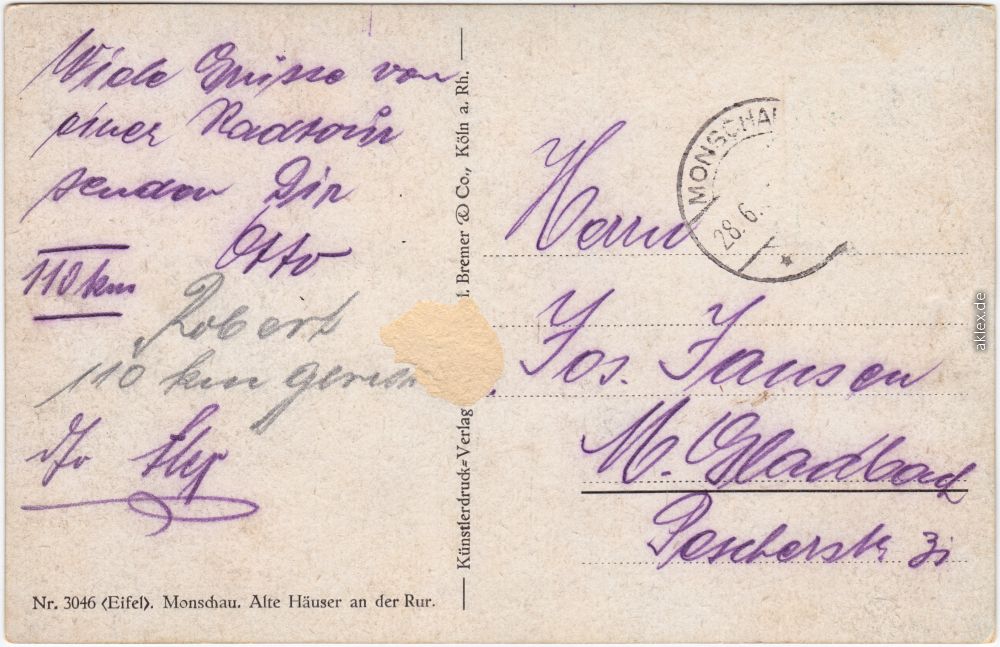 Viele Grüsse von
einer Radtour
senden Dir
Otto
110 km
Robert
110 km
Künstlerdruck-Verlag
l. Bremer & Co., Köln a. Rh.
Nr. 3046 (Eifel). Monschau. Alte Häuser an der Rur.
MONSCHAU
28.6.
Herrn
Jos. Jansen
M. Gladbach
Pescherstr
aklex.de